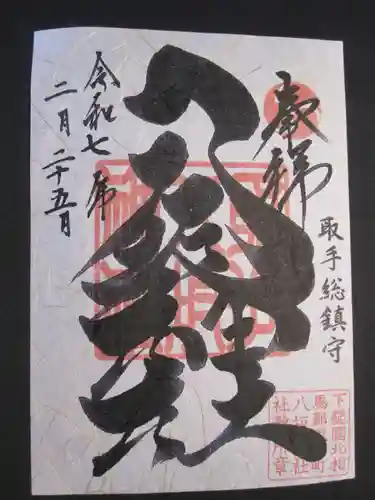 奉拝
取手総鎮守
八坂神社
令和七年
二月二十五日
下總國北相
馬郡取手町
八坂神社
社務所章